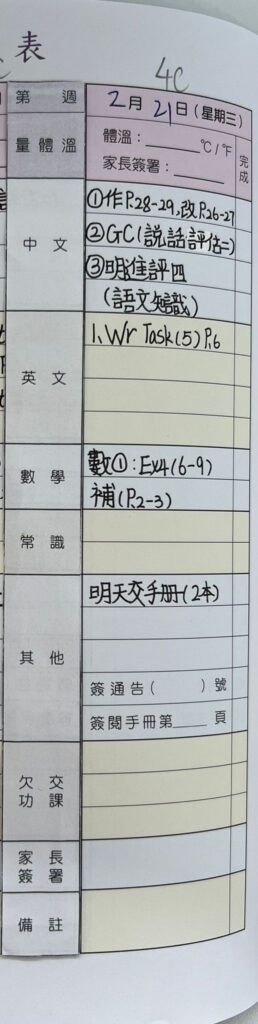 表
4C
第 週 2月21日(星期三)
量體溫 體溫：______°C/°F 完成
家長簽署：______
中文 ①作P.28-29,改P.26-27
②GC(說話評估二)
③明進評四
(語文知識)
英文 1. Wr Task(5) P.6
數學 數①：Ex4(6-9)
補(P.2-3)
常識
其他 明天交手冊(2本)
簽通告( )號
簽閱手冊第____頁
欠交功課
家長簽署
備註